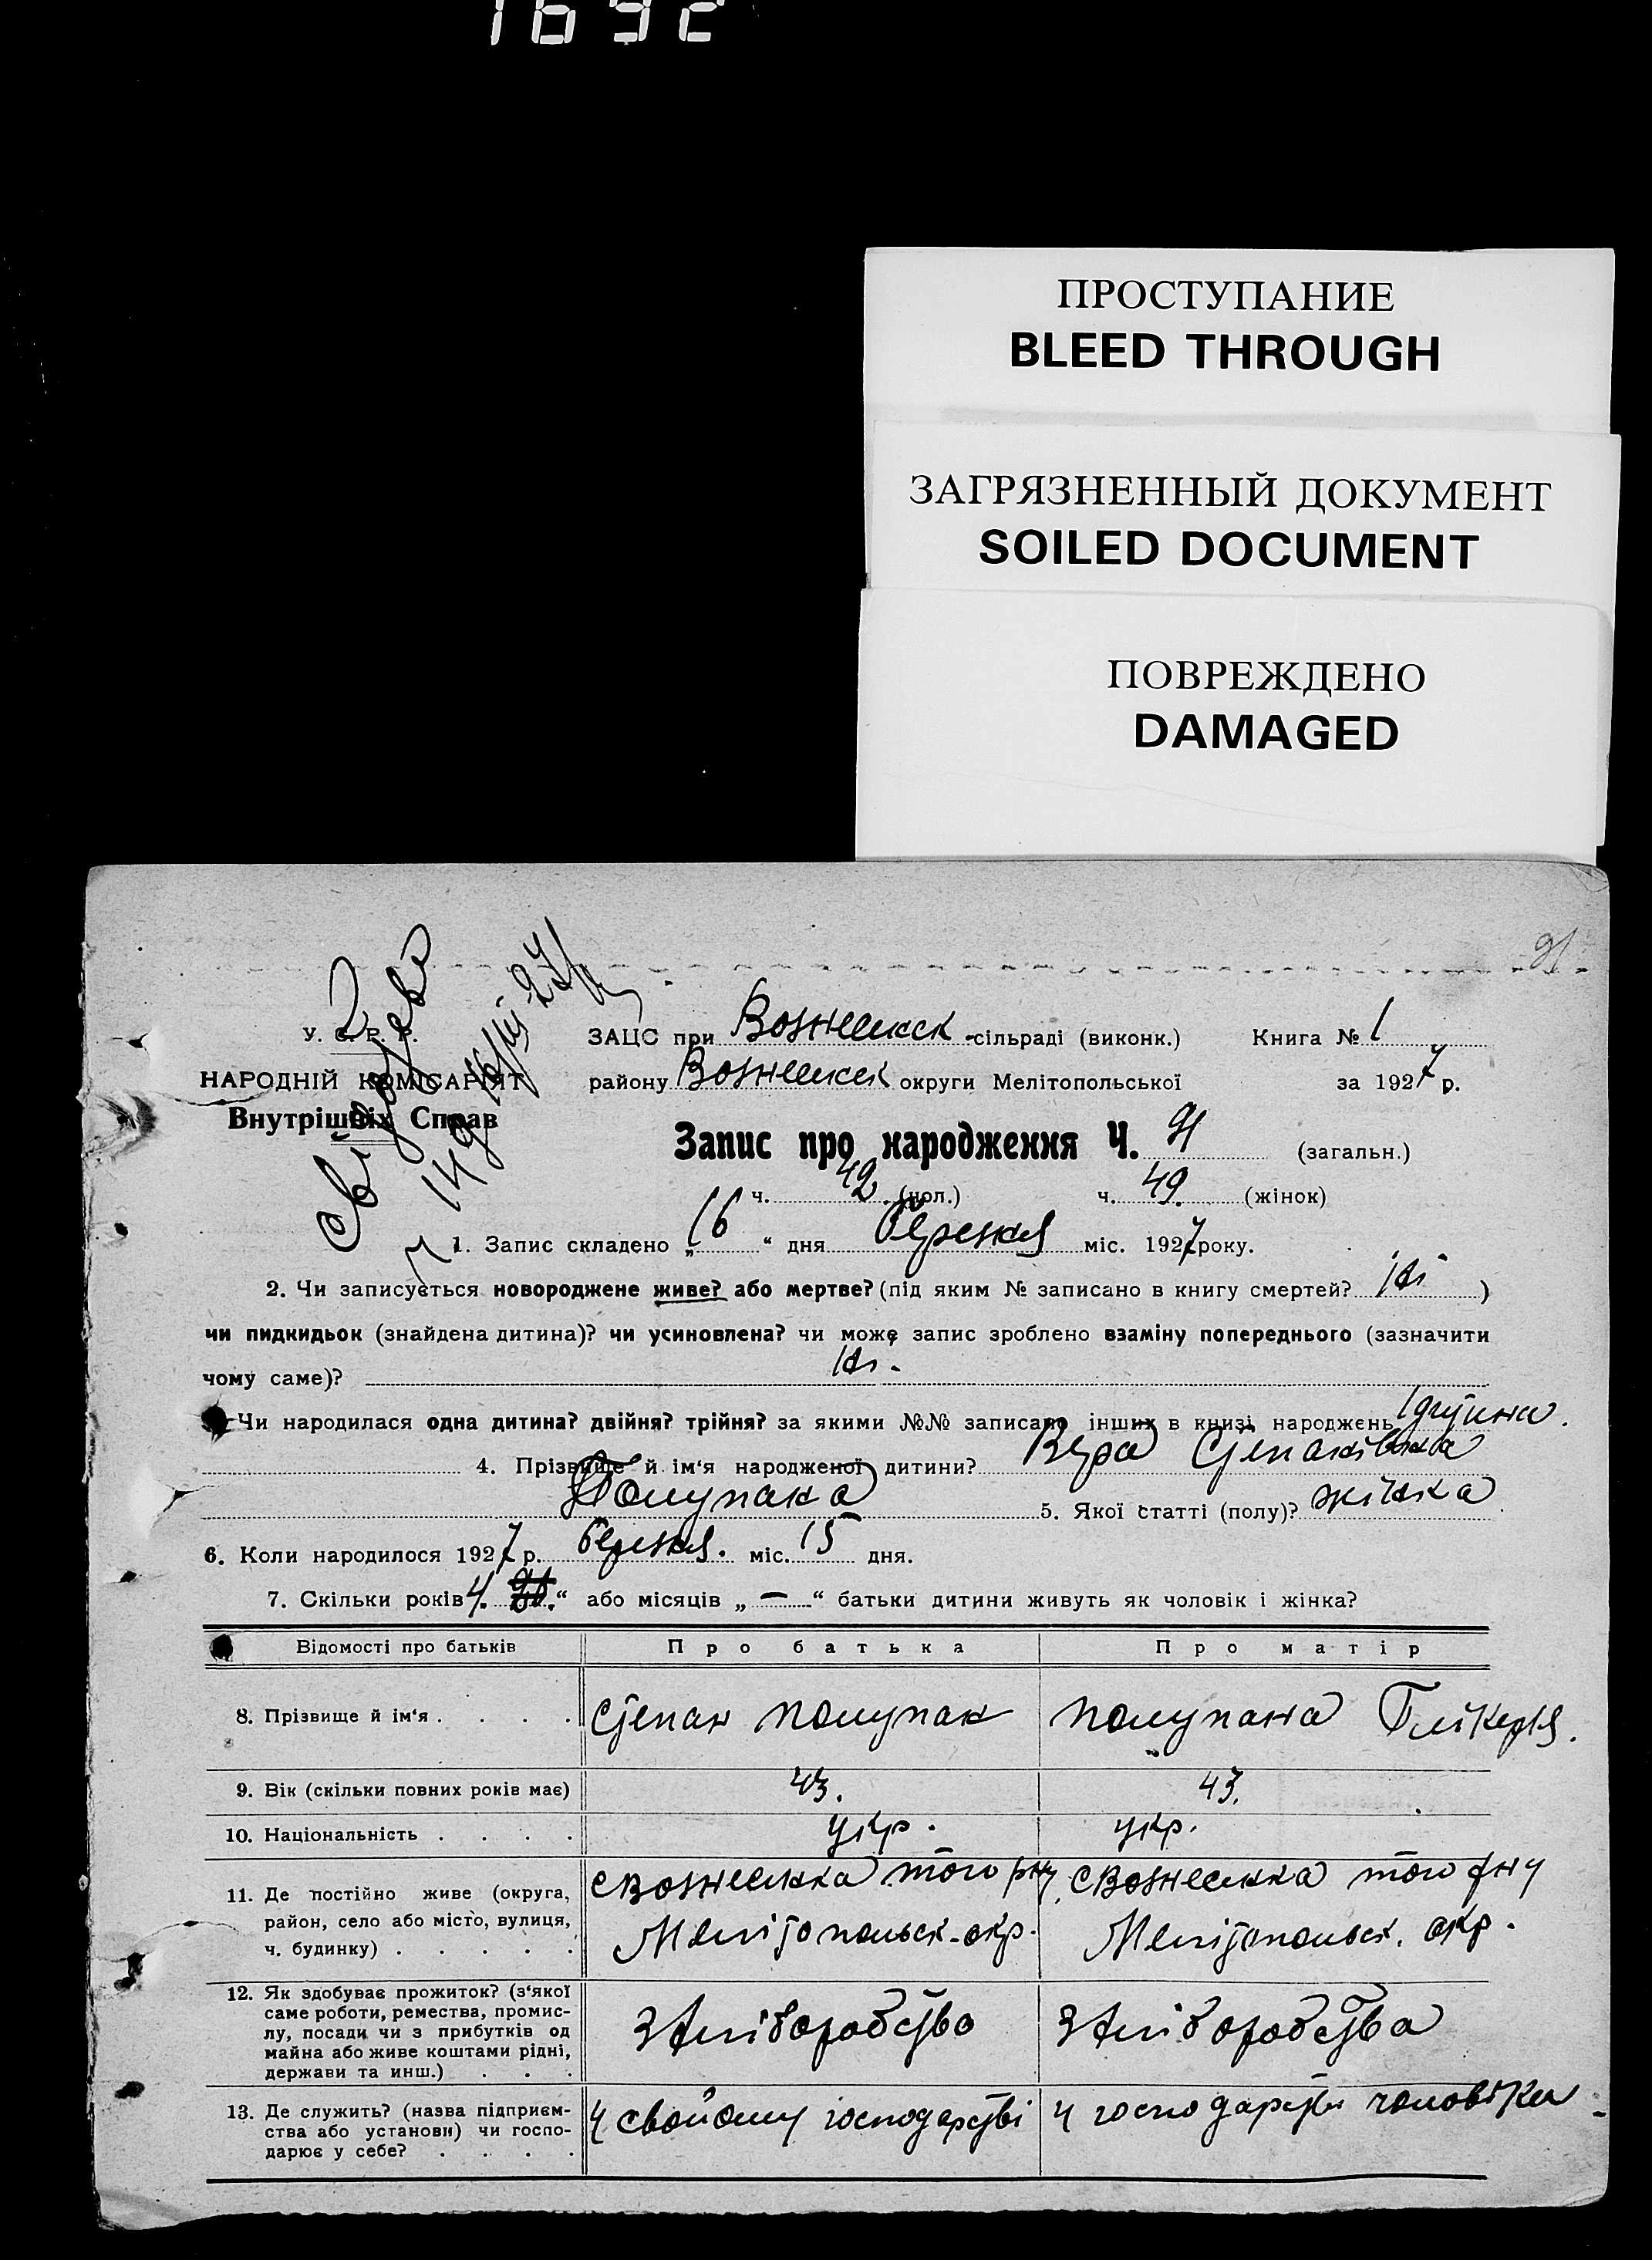 1692
ПРОСТУПАНИЕ
BLEED THROUGH
ЗАГРЯЗНЕННЫЙ ДОКУМЕНТ
SOILED DOCUMENT
ПОВРЕЖДЕНО
DAMAGED
91
У. С. Р. Р.
НАРОДНІЙ КОМІСАРІЯТ
Внутрішніх Справ
ЗАЦС при Вознесенск -сільраді (виконк.) Книга № 1
району Вознесенск округи Мелітопольської за 1927 р.
Запис про народження Ч. 91 (загальн.)
ч. 42 (чол.) ч. 49 (жінок)
1. Запис складено „ 16 “ дня березня міс. 1927 року.
2. Чи записується новороджене живе? або мертве? (під яким № записано в книгу смертей? ні )
чи пидкидьок (знайдена дитина)? чи усиновлена? чи може запис зроблено взаміну попереднього (зазначити
чому саме)? ні.
Чи народилася одна дитина? двійня? трійня? за якими №№ записано інших в книзі народжень
4. Прізвище й ім‘я народженої дитини? Вера Степанівна
Полупана 5. Якої статті (полу)? жінка
6. Коли народилося 1927 р. березня. міс. 15 дня.
7. Скільки років 4. “ або місяців „ — “ батьки дитини живуть як чоловік і жінка?
Відомості про батьків Про батька Про матір
8. Прізвище й ім‘я . . . . Степан Полупан Полупана Глікерія.
9. Вік (скільки повних років має) 43. 43.
10. Національність . . . . укр. укр.
11. Де постійно живе (округа, район, село або місто, вулиця, ч. будинку) . . . . .
с Вознесенка того рну с Вознесенка того рну
Мелітопольск. окр. Мелітопольск. окр.
12. Як здобуває прожиток? (з‘якої
саме роботи, ремества, промис-
лу, посади чи з прибутків од
майна або живе коштами рідні,
держави та инш.) . . .
З хліборобства З хліборобства
13. Де служить? (назва підприєм-
ства або установи) чи госпо-
дарює у себе? . . . .
У свойому господарстві У господарстві чоловіка